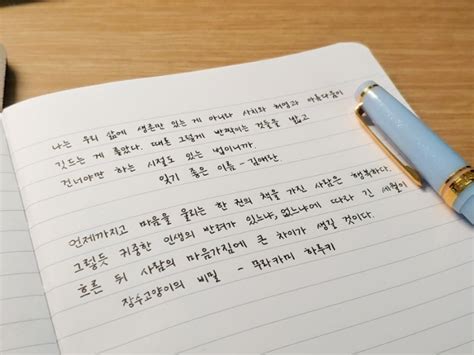 나는 우리 삶에 생존만 있는 게 아니라 사치와 허영과 아름다움이
깃드는 게 좋았다. 때론 그렇게 반짝이는 것들을 밟고
건너야만 하는 시절도 있는 법이니까.
잊기 좋은 이름 - 김애란
언제까지고 마음을 울리는 한 권의 책을 가진 사람은 행복하다.
그렇듯 귀중한 인생의 반려가 있느냐, 없느냐에 따라 긴 세월이
흐른 뒤 사람의 마음가짐에 큰 차이가 생길 것이다.
장수고양이의 비밀 - 무라카미 하루키